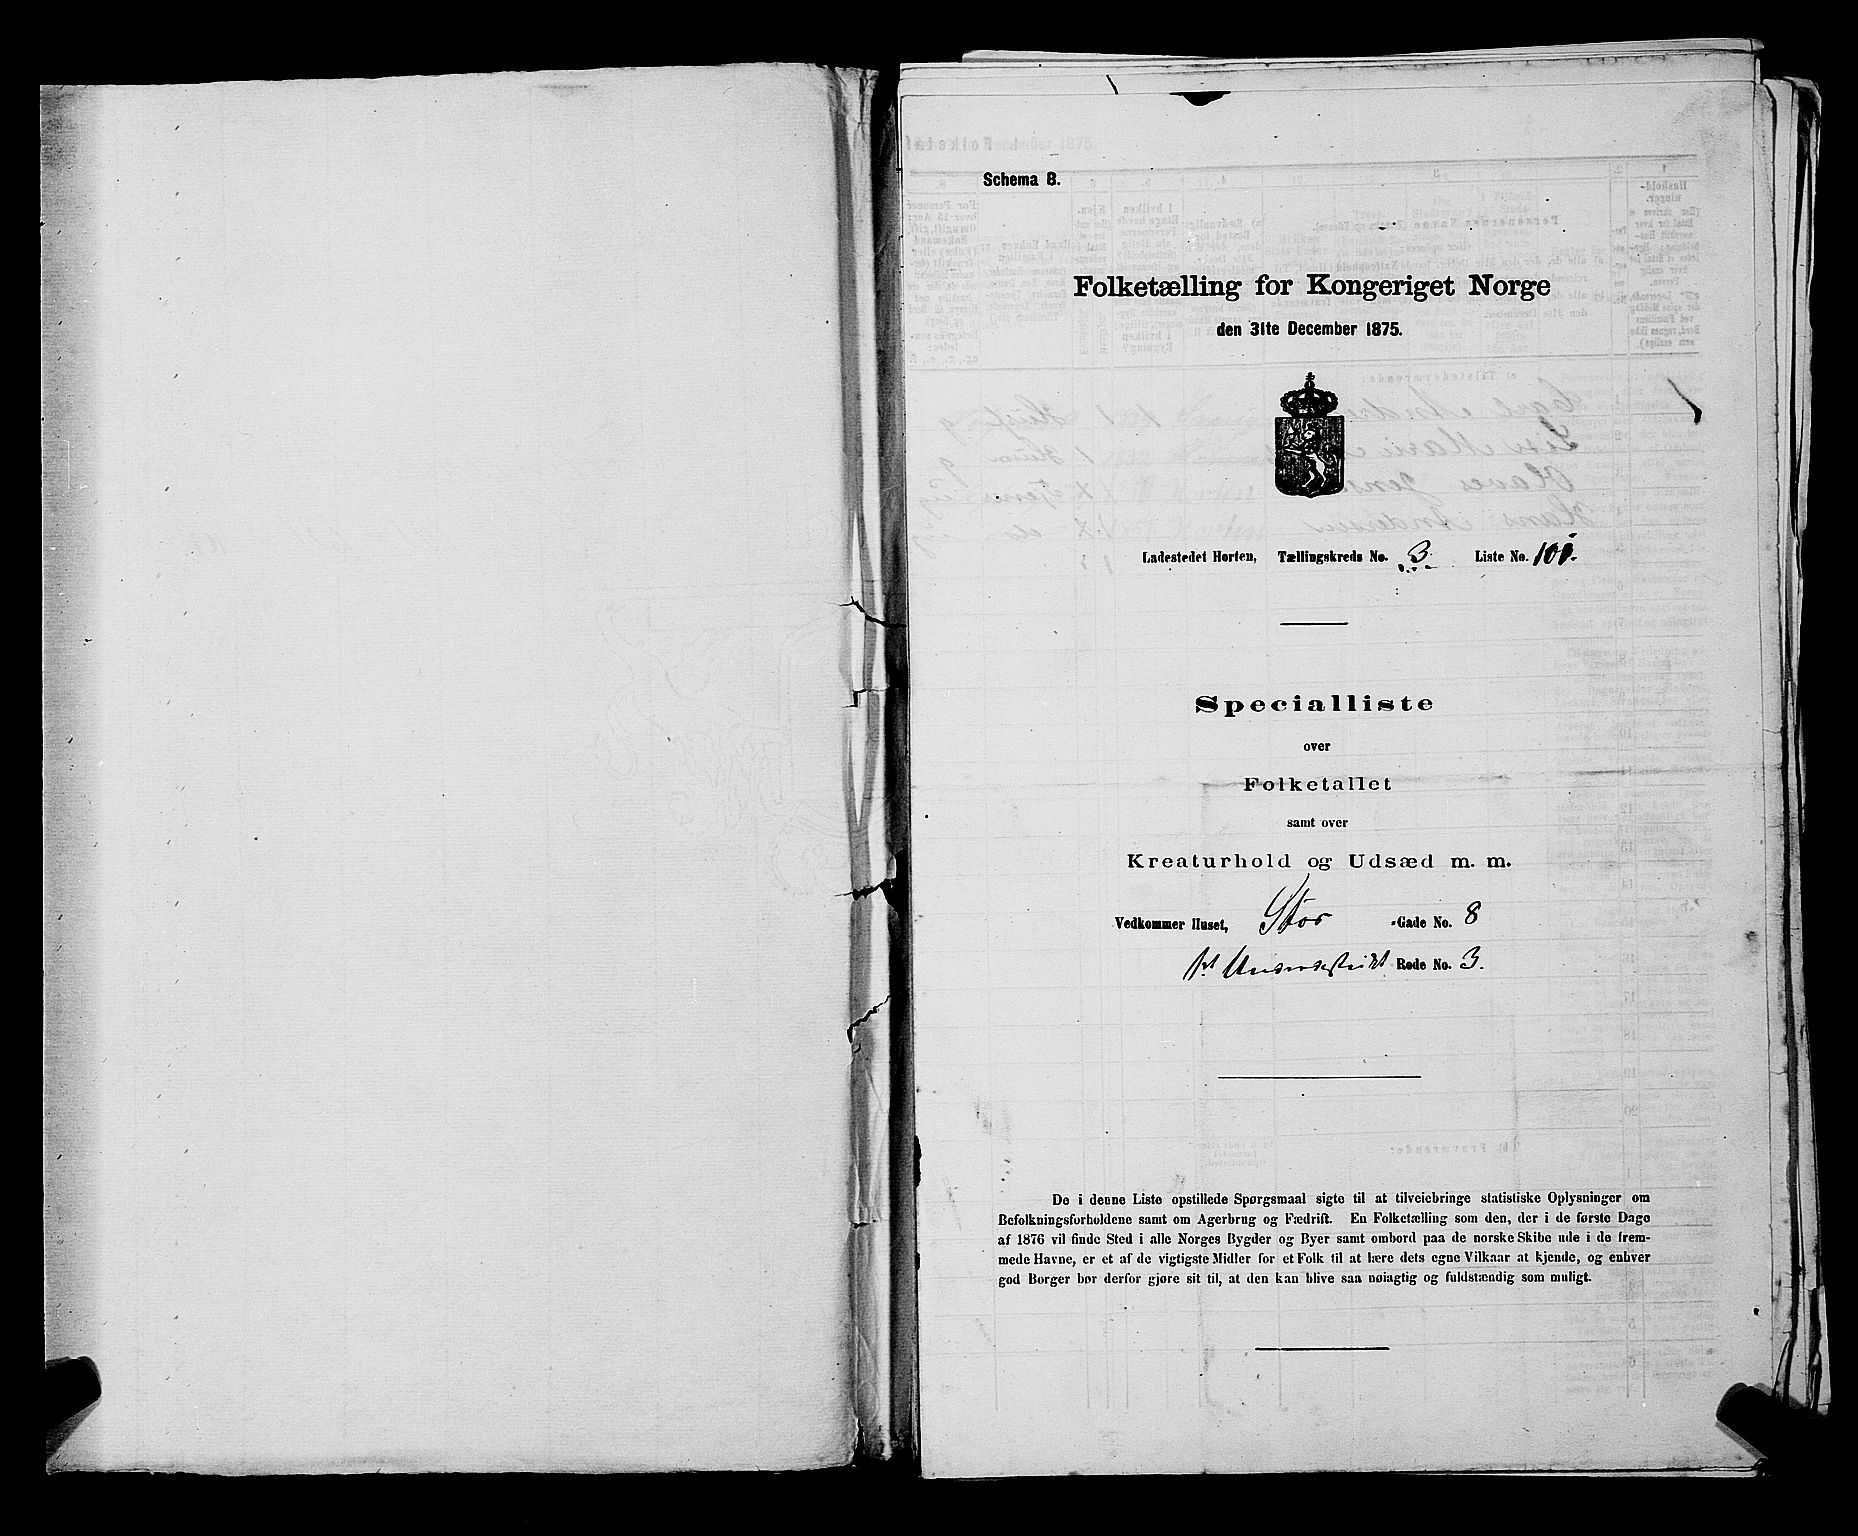 Schema B.
Folketælling for Kongeriget Norge
den 31te December 1875.
Ladestedet Horten, Tællingskreds No. 3. Liste No. 101.
Specialliste
over
Folketallet
samt over
Kreaturhold og Udsæd m. m.
Vedkommer Huset, Stor -Gade No. 8
Rode No. 3.
De i denne Liste opstillede Spørgsmaal sigte til at tilveiebringe statistiske Oplysninger om
Befolkningsforholdene samt om Agerbrug og Fædrift. En Folketælling som den, der i de første Dage
af 1876 vil finde Sted i alle Norges Bygder og Byer samt ombord paa de norske Skibe ude i de frem-
mede Havne, er et af de vigtigste Midler for et Folk til at lære dets egne Vilkaar at kjende, og enhver
god Borger bør derfor gjøre sit til, at den kan blive saa nøiagtig og fuldstændig som muligt.